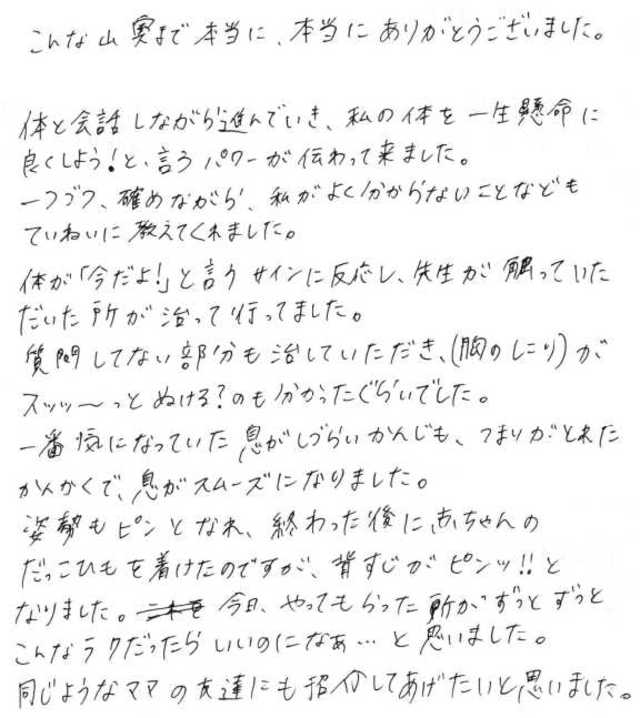 こんな山奥まで本当に、本当にありがとうございました。
体と会話しながら進んでいき、私の体を一生懸命に
良くしよう!と、言うパワーが伝わって来ました。
一つづつ、確めながら、私がよく分からないことなども
ていねいに教えてくれました。
体が「今だよ!」と言うサインに反応し、先生が触っていた
だいた所が治って行ってました。
質問してない部分も治していただき、(胸のしこり)が
スッッ〜っとぬける?のも分かったぐらいでした。
一番気になっていた息がしづらいかんじも、つまりがとれた
かんかくで、息がスムーズになりました。
姿勢もピンとなれ、終わった後に、赤ちゃんの
だっこひもを着けたのですが、背すじがピンッ!!と
なりました。今日、やってもらった所がずっとずっと
こんなラクだったらいいのになぁ…と思いました。
同じようなママの友達にも紹介してあげたいと思いました。